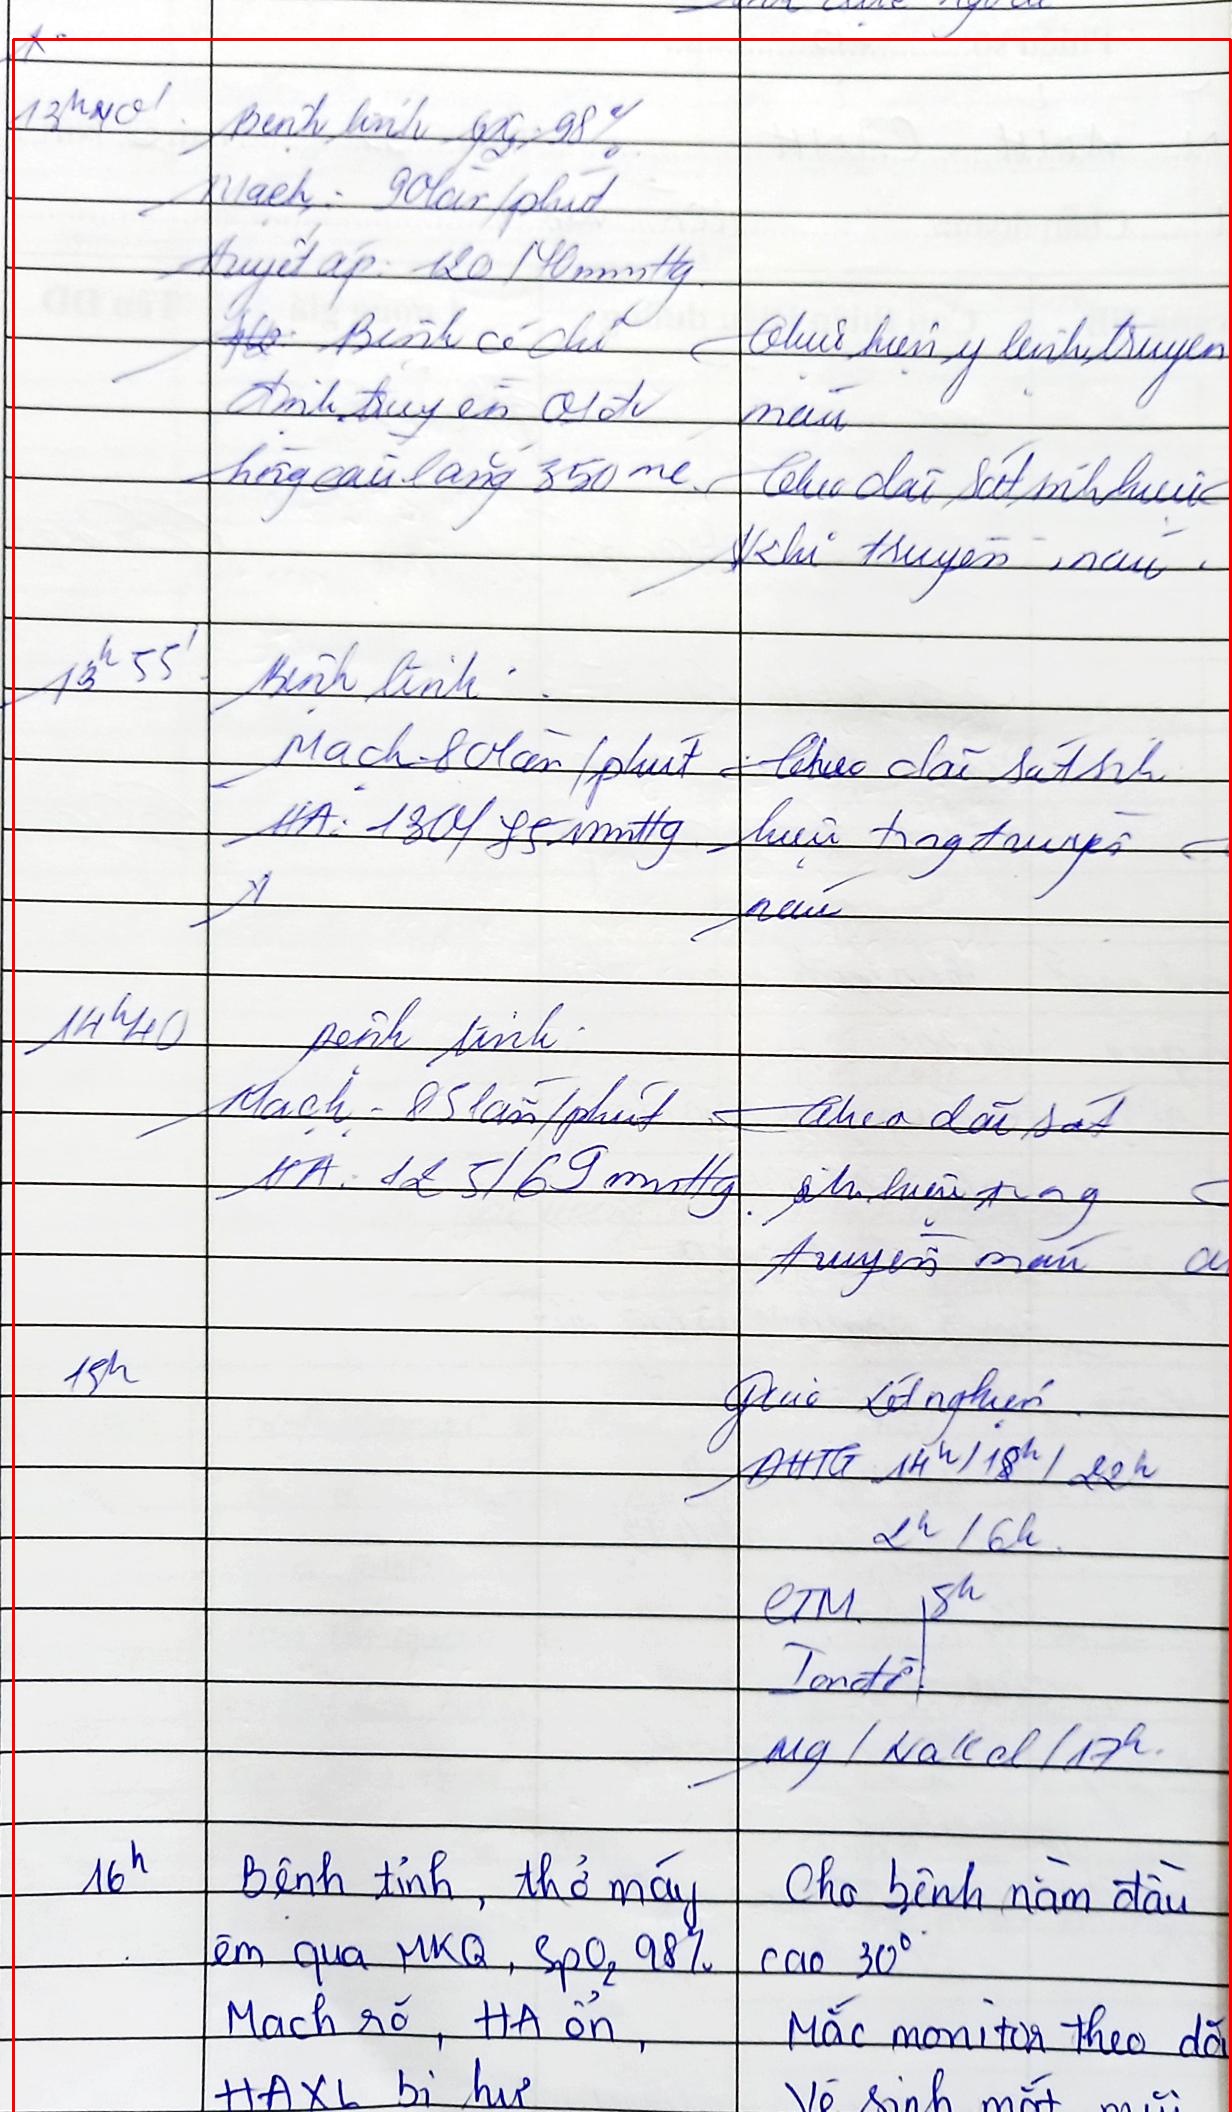 13h40'
Bệnh tỉnh 98%
Mạch: 90 lần/phút
Huyết áp: 120/70mmHg
Bệnh có chỉ
định truyền 01 đv
hồng cầu lắng 350 ml
- Thực hiện y lệnh truyền
máu
- Theo dõi sát sinh hiệu
khi truyền máu
13h55'
Bệnh tỉnh
Mạch 80 lần/phút
HA: 130/85mmHg
- Theo dõi sát sinh
hiệu trong truyền
máu
14h40
Bệnh tỉnh
Mạch: 85 lần/phút
HA: 125/69mmHg
- Theo dõi sát
sinh hiệu trong
truyền máu
15h
xét nghiệm
ĐHTG 14h/18h/22h
2h/6h
CTM 5h
Ion đồ
16h
Bệnh tỉnh, thở máy
êm qua MKQ, SpO2 98%
Mạch rõ, HA ổn,
HAXL bị hư
Cho bệnh nằm đầu
cao 30°
Mắc monitor theo dõi
Vệ sinh mắt mũi